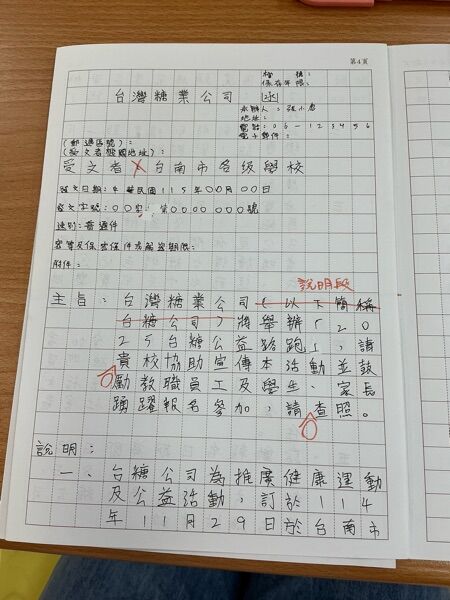 第4頁
檔 號：
保存年限：
台灣糖業公司 函
承辦人：張小康
地址：
電話：06-123456
電子郵件：
(郵遞區號)：
(受文者機關地址)：
受文者：台南市各級學校
發文日期：中華民國115年00月00日
發文字號：00字 第0000000號
速別：普通件
密等及保密條件或解密期限：
附件：
說明段
主旨：台灣糖業公司（以下簡稱
台糖公司）將舉辦「20
25台糖公益路跑」，請
貴校協助宣傳本活動並鼓
勵教職員工及學生、家長
踴躍報名參加，請查照。
說明：
一、台糖公司為推廣健康運動
及公益活動，訂於114
年11月29日於台南市